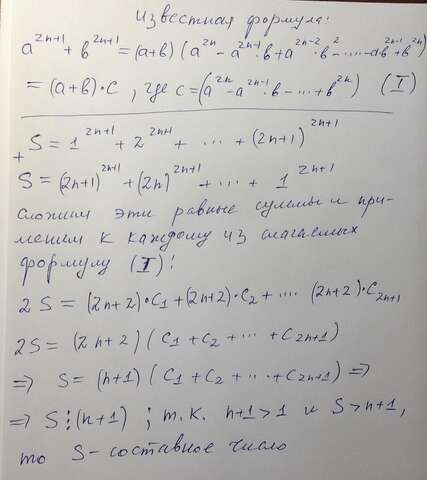 Известная формула:
a^{2n+1} + b^{2n+1} = (a+b) (a^{2n} - a^{2n-1}·b + a^{2n-2}·b^2 - .... - ab^{2n-1} + b^{2n})
= (a+b)·c , где c = (a^{2n} - a^{2n-1}·b - ... + b^{2n}) (I)
+ S = 1^{2n+1} + 2^{2n+1} + ... + (2n+1)^{2n+1}
S = (2n+1)^{2n+1} + (2n)^{2n+1} + ... + 1^{2n+1}
Сложим эти равные суммы и при-
меним к каждому из слагаемых
формулу (I):
2S = (2n+2)·C_1 + (2n+2)·C_2 + .... (2n+2)·C_{2n+1}
2S = (2n+2) (C_1 + C_2 + ... + C_{2n+1})
=> S = (n+1) (C_1 + C_2 + ... + C_{2n+1}) =>
=> S ⋮ (n+1) ; т.к. n+1 > 1 и S > n+1,
то S - составное число